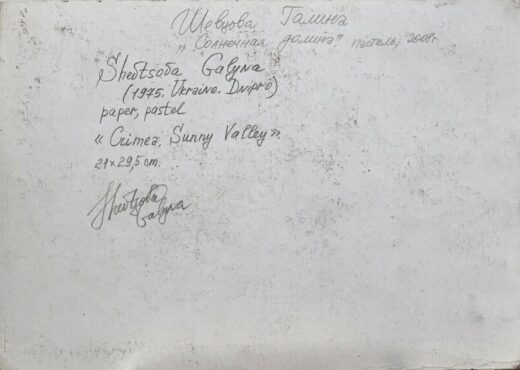 Шевцова Галина
"Солнечная долина" пастель, 2008г.
Shevtsova Galyna
(1975. Ukraine. Dnipro)
paper, pastel
« Crimea, Sunny Valley».
21×29,5 cm.
Shevtsova
Galyna